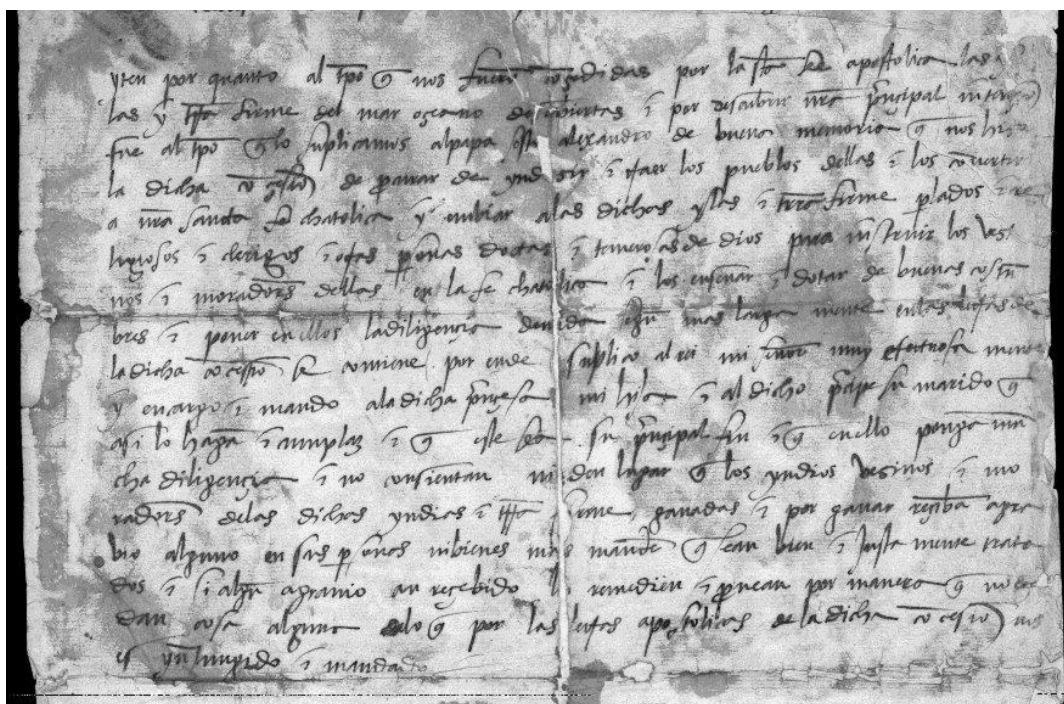 yten por quanto al tpo q nos fueron concedidas por la sta se apostolica las
las y trra firme del mar oçeano descubiertas i por descubrir nra prinçipal intençion
fue al tpo q lo suplicamos al papa sesto alexandro de buena memoria q nos hizo
la dicha conçesion de procurar de ynduzir i traer los pueblos dellas i los convertir
a nra santa fe chatolica y enbiar a las dichas yslas i trra firme perlados i re
ligiosos i clerigos i otras personas dotas i temerosas de dios para instruir los vesi
nos i moradores dellas en la fe chatolica i los enseñar i dotar de buenas costun
bres i poner en ellos la diligençia devida segun mas larga mente en las letras de
la dicha conçesion se contiene por ende suplico al rei mi señor muy efetuosa mente
y encargo i mando a la dicha prinçesa mi hija i al dicho prinçipe su marido q
asi lo hagan i cunplan i q este sea su prinçipal fin i q en ello pongan mu
cha diligençia i no consientan ni den lugar q los yndios vesinos i mo
radores delas dichas yndias i trra firme ganadas i por ganar reçiban agra
vio alguno en sus personas ni bienes mas manden q sean bien i justa mente trata
dos i si algun agravio an reçebido lo remedien i provean por manera q no eçe
dan cosa alguna delo q por las letras apostolicas de la dicha conçesion nos
es yniungido i mandado